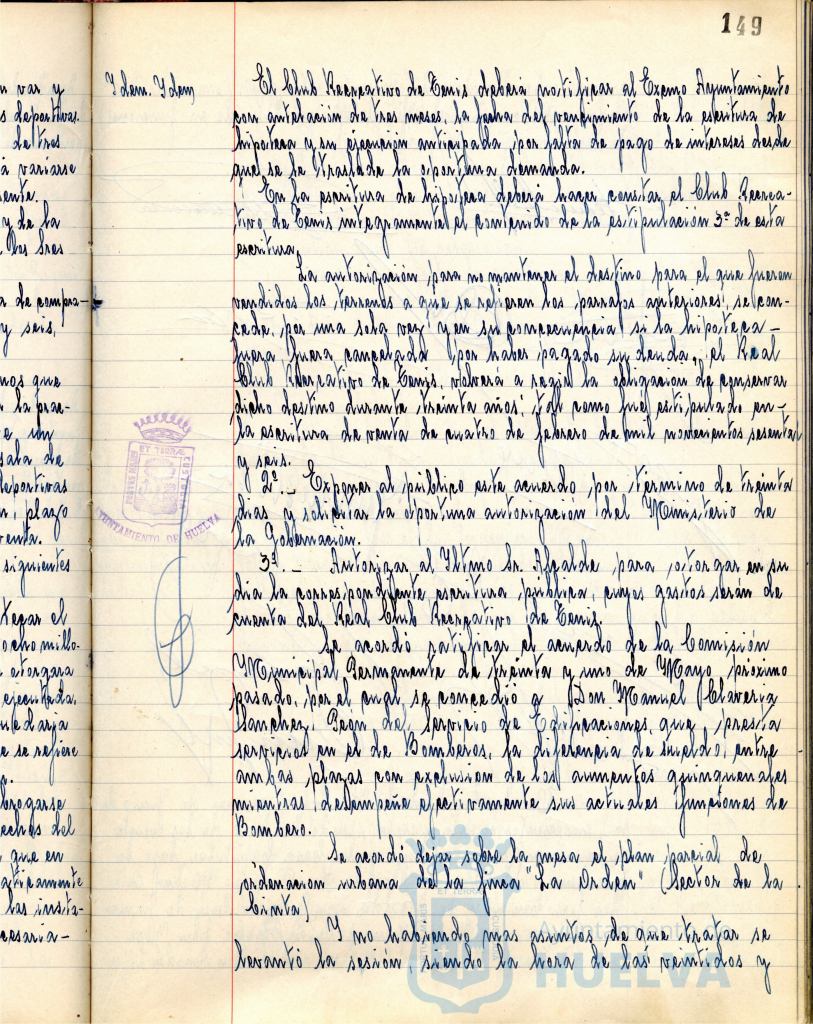 149
Idem. Idem,
El Club Recreativo de Tenis deberá notificar al Exemo Ayuntamiento
con antelación de tres meses, la fecha del vencimiento de la escritura de
hipoteca y su ejecución anticipada, por falta de pago de intereses desde
que se le traslade la oportuna demanda.
En la escritura de hipoteca deberá hacer constar, el Club Recrea-
tivo de Tenis integramente el contenido de la estipulación 3ª de esta
escritura,
La autorización para no mantener el destino para el que fueron
vendidos los terrenos a que se refieren los parrafos anteriores, se con-
cede, por una sola vez y en su concecuencia si la hipoteca-
fuera, fuera cancelada por haber pagado su deuda, el Real
Club Recreativo de Tenis, volverá a regir la obligación de conservar
dicho destino durante treinta años, tal como fué estipulado en-
la escritura de venta de cuatro de febrero de mil novecientos sesenta
y seis.
2º.- Exponer al público este acuerdo por término de treinta
dias y solicitar la oportuna autorización del Ministerio de
la Gobernación.
3º.- Autorizar al Iltmo Sr. Alcalde para otorgar en su
dia la correspondiente escritura pública, cuyos gastos serán de
cuenta del Real Club Recreativo de Tenis.
Se acordó ratificar el acuerdo de la Comisión
Municipal Permanente de treinta y uno de Mayo próximo
pasado, por el cual se concedió a Don Manuel Claveria
Sanchez, Peon del Servicio de Edificaciones, que presta
servicios en el de Bomberos, la diferencia de sueldo, entre
ambas plazas con exclusion de los aumentos quinquenales
mientras desempeñe efectivamente sus actuales funciones de
Bombero.
Se acordó dejar sobre la mesa el plan parcial de
ordenacion urbana de la finca "La Orden" (Sector de la
Cinta)
Y no habiendo mas asuntos de que tratar se
levantó la sesión, siendo la hora de las veintidos y
AYUNTAMIENTO DE HUELVA
Ayuntamiento
HUELVA